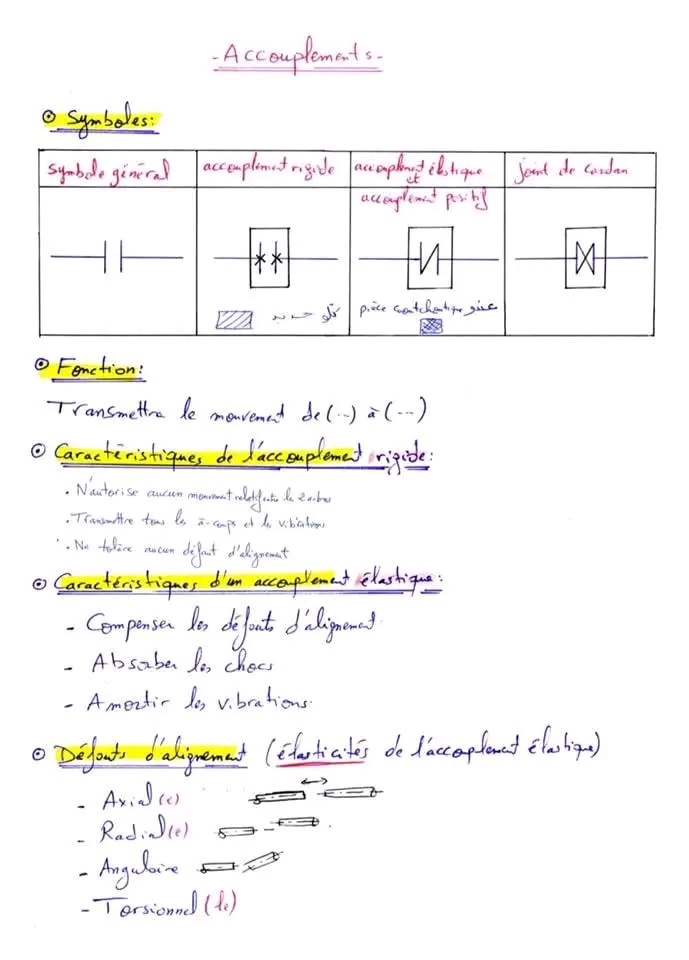 - Accouplements -
Symboles:
symbole général
accouplement rigide
accouplement élastique
et
accouplement positif
joint de cardan
pièce caoutchoutique
Fonction:
Transmettre le mouvement de (...) à (...)
Caractéristiques de l'accouplement rigide:
. N'autorise aucun mouvement relatif entre les 2 arbres
. Transmettre tous les à-coups et les vibrations
. Ne tolère aucun défaut d'alignement
Caractéristiques d'un accouplement élastique:
- Compenser les défauts d'alignement.
- Absorber les chocs
- Amortir les vibrations.
Défauts d'alignement (élasticités de l'accouplement élastique)
- Axial (e)
- Radial (e)
- Angulaire
- Torsionnel (le)